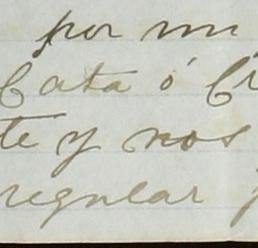 por mi
Cata ó Cr
te y nos
regular